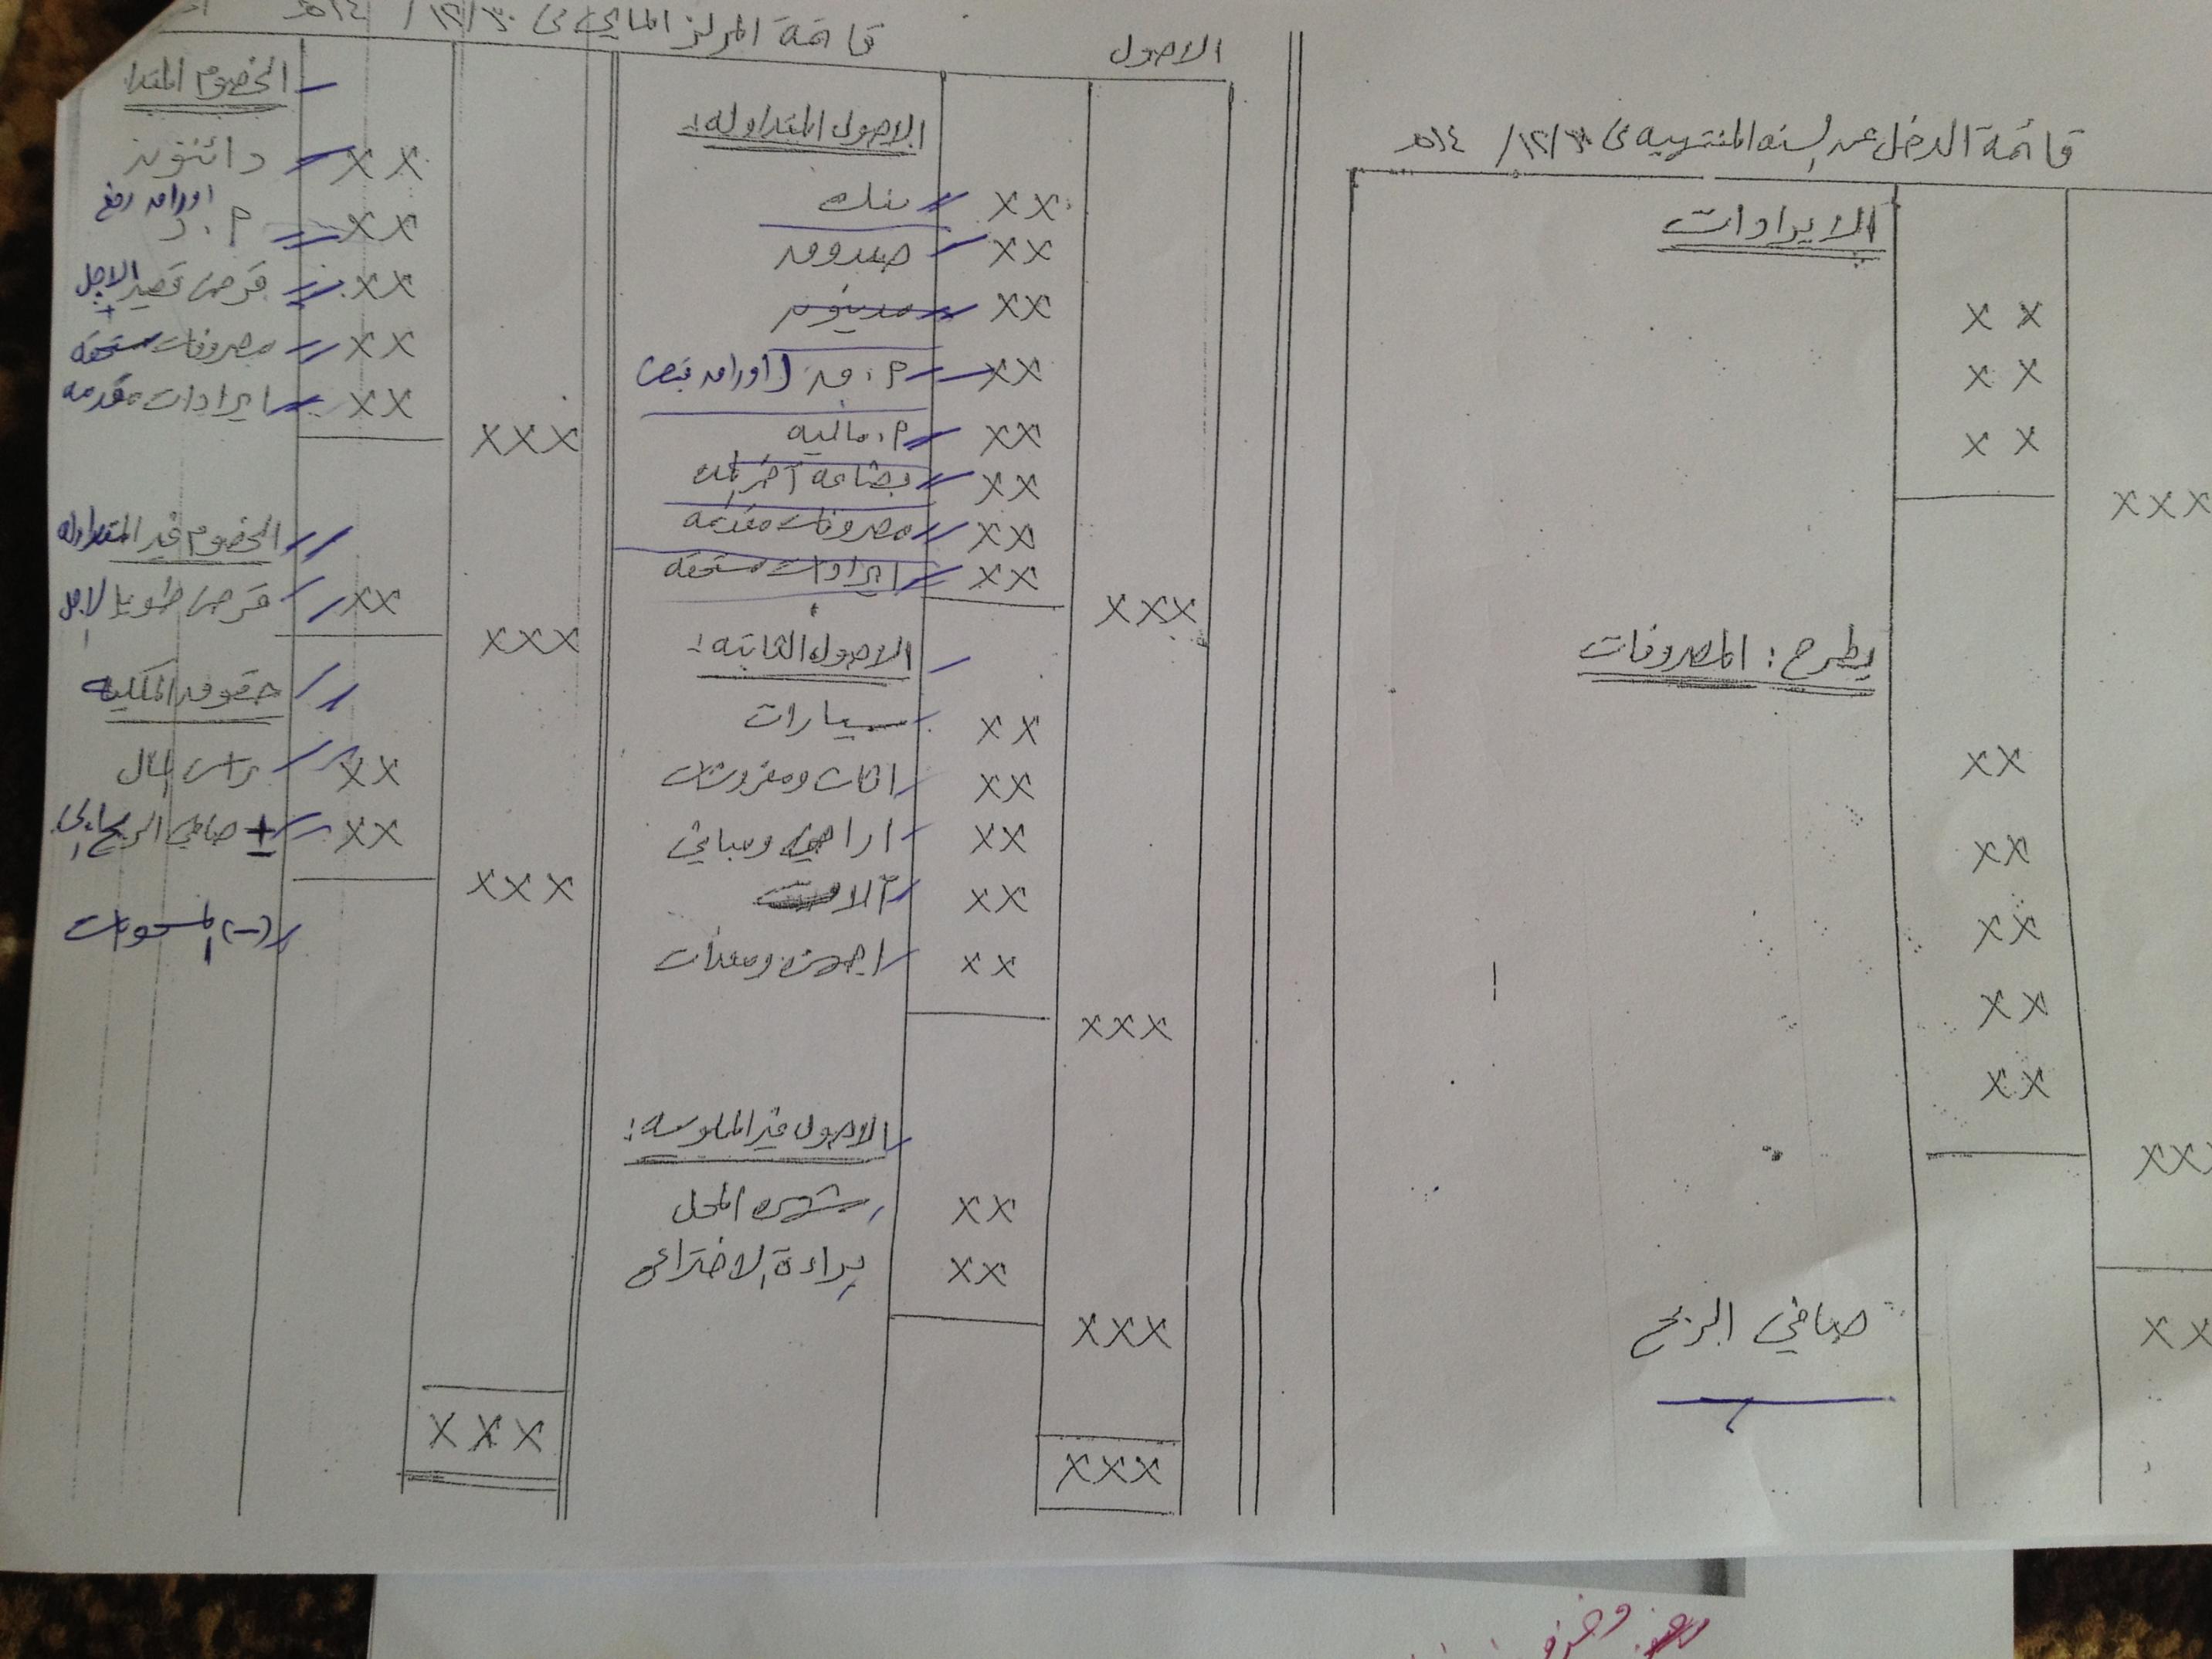 قائمة الدخل عن السنه المنتهيه في ٣٠/١٢/ ١٤هـ
الايرادات
X X
X X
X X
XXX
يطرح : المصروفات
XX
XX
XX
XX
XX
XXX
صافي الربح
XX
قائمة المركز المالي في ٣٠/١٢/ ١٤هـ
الاصول
الاصول المتداوله :
XX بنك
XX صندوق
XX مدينون
XX أ . ق ( اوراق قبض )
XX أ . ماليه
XX بضاعة آخر المده
XX مصروفات مقدمه
XX ايرادات مستحقه
XXX
الاصول الثابته :
XX سيارات
XX اثاث ومفروشات
XX اراضي ومباني
XX آلات
XX اجهزه ومعدات
XXX
الاصول غير الملموسه :
XX شهره المحل
XX براءة الاختراع
XXX
XXX
الخصوم المتدا
XX دائنون
XX أ . د اوراق دفع
XX قرض قصير الاجل
XX مصروفات مستحقه
XX ايرادات مقدمه
XXX
الخصوم غير المتداوله
XX قرض طويل الاجل
XXX
حقوق الملكيه
XX راس المال
XX ± صافي الربح
XXX
(-) المسحوبات
XXX